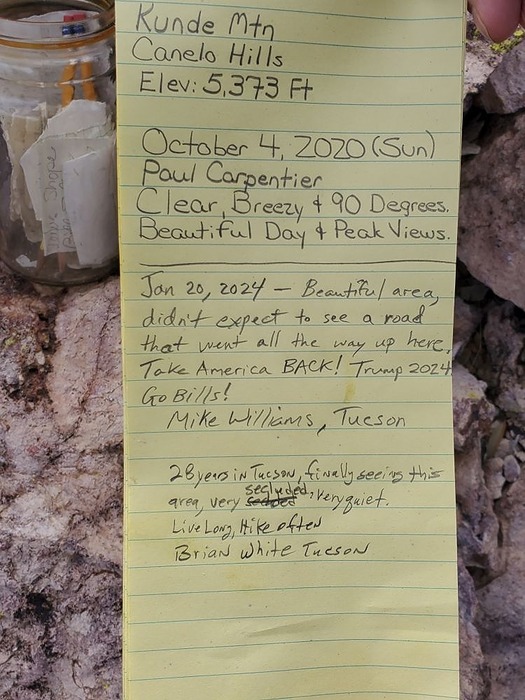 Kunde Mtn
Canelo Hills
Elev: 5,373 Ft
October 4, 2020 (Sun)
Paul Carpentier
Clear, Breezy & 90 Degrees.
Beautiful Day & Peak Views.
Jan 20, 2024 — Beautiful area,
didn't expect to see a road
that went all the way up here.
Take America BACK! Trump 2024
Go Bills!
Mike Williams, Tucson
28 years in Tucson, finally seeing this
area, very secluded, very quiet.
Live Long, Hike often
Brian White Tucson